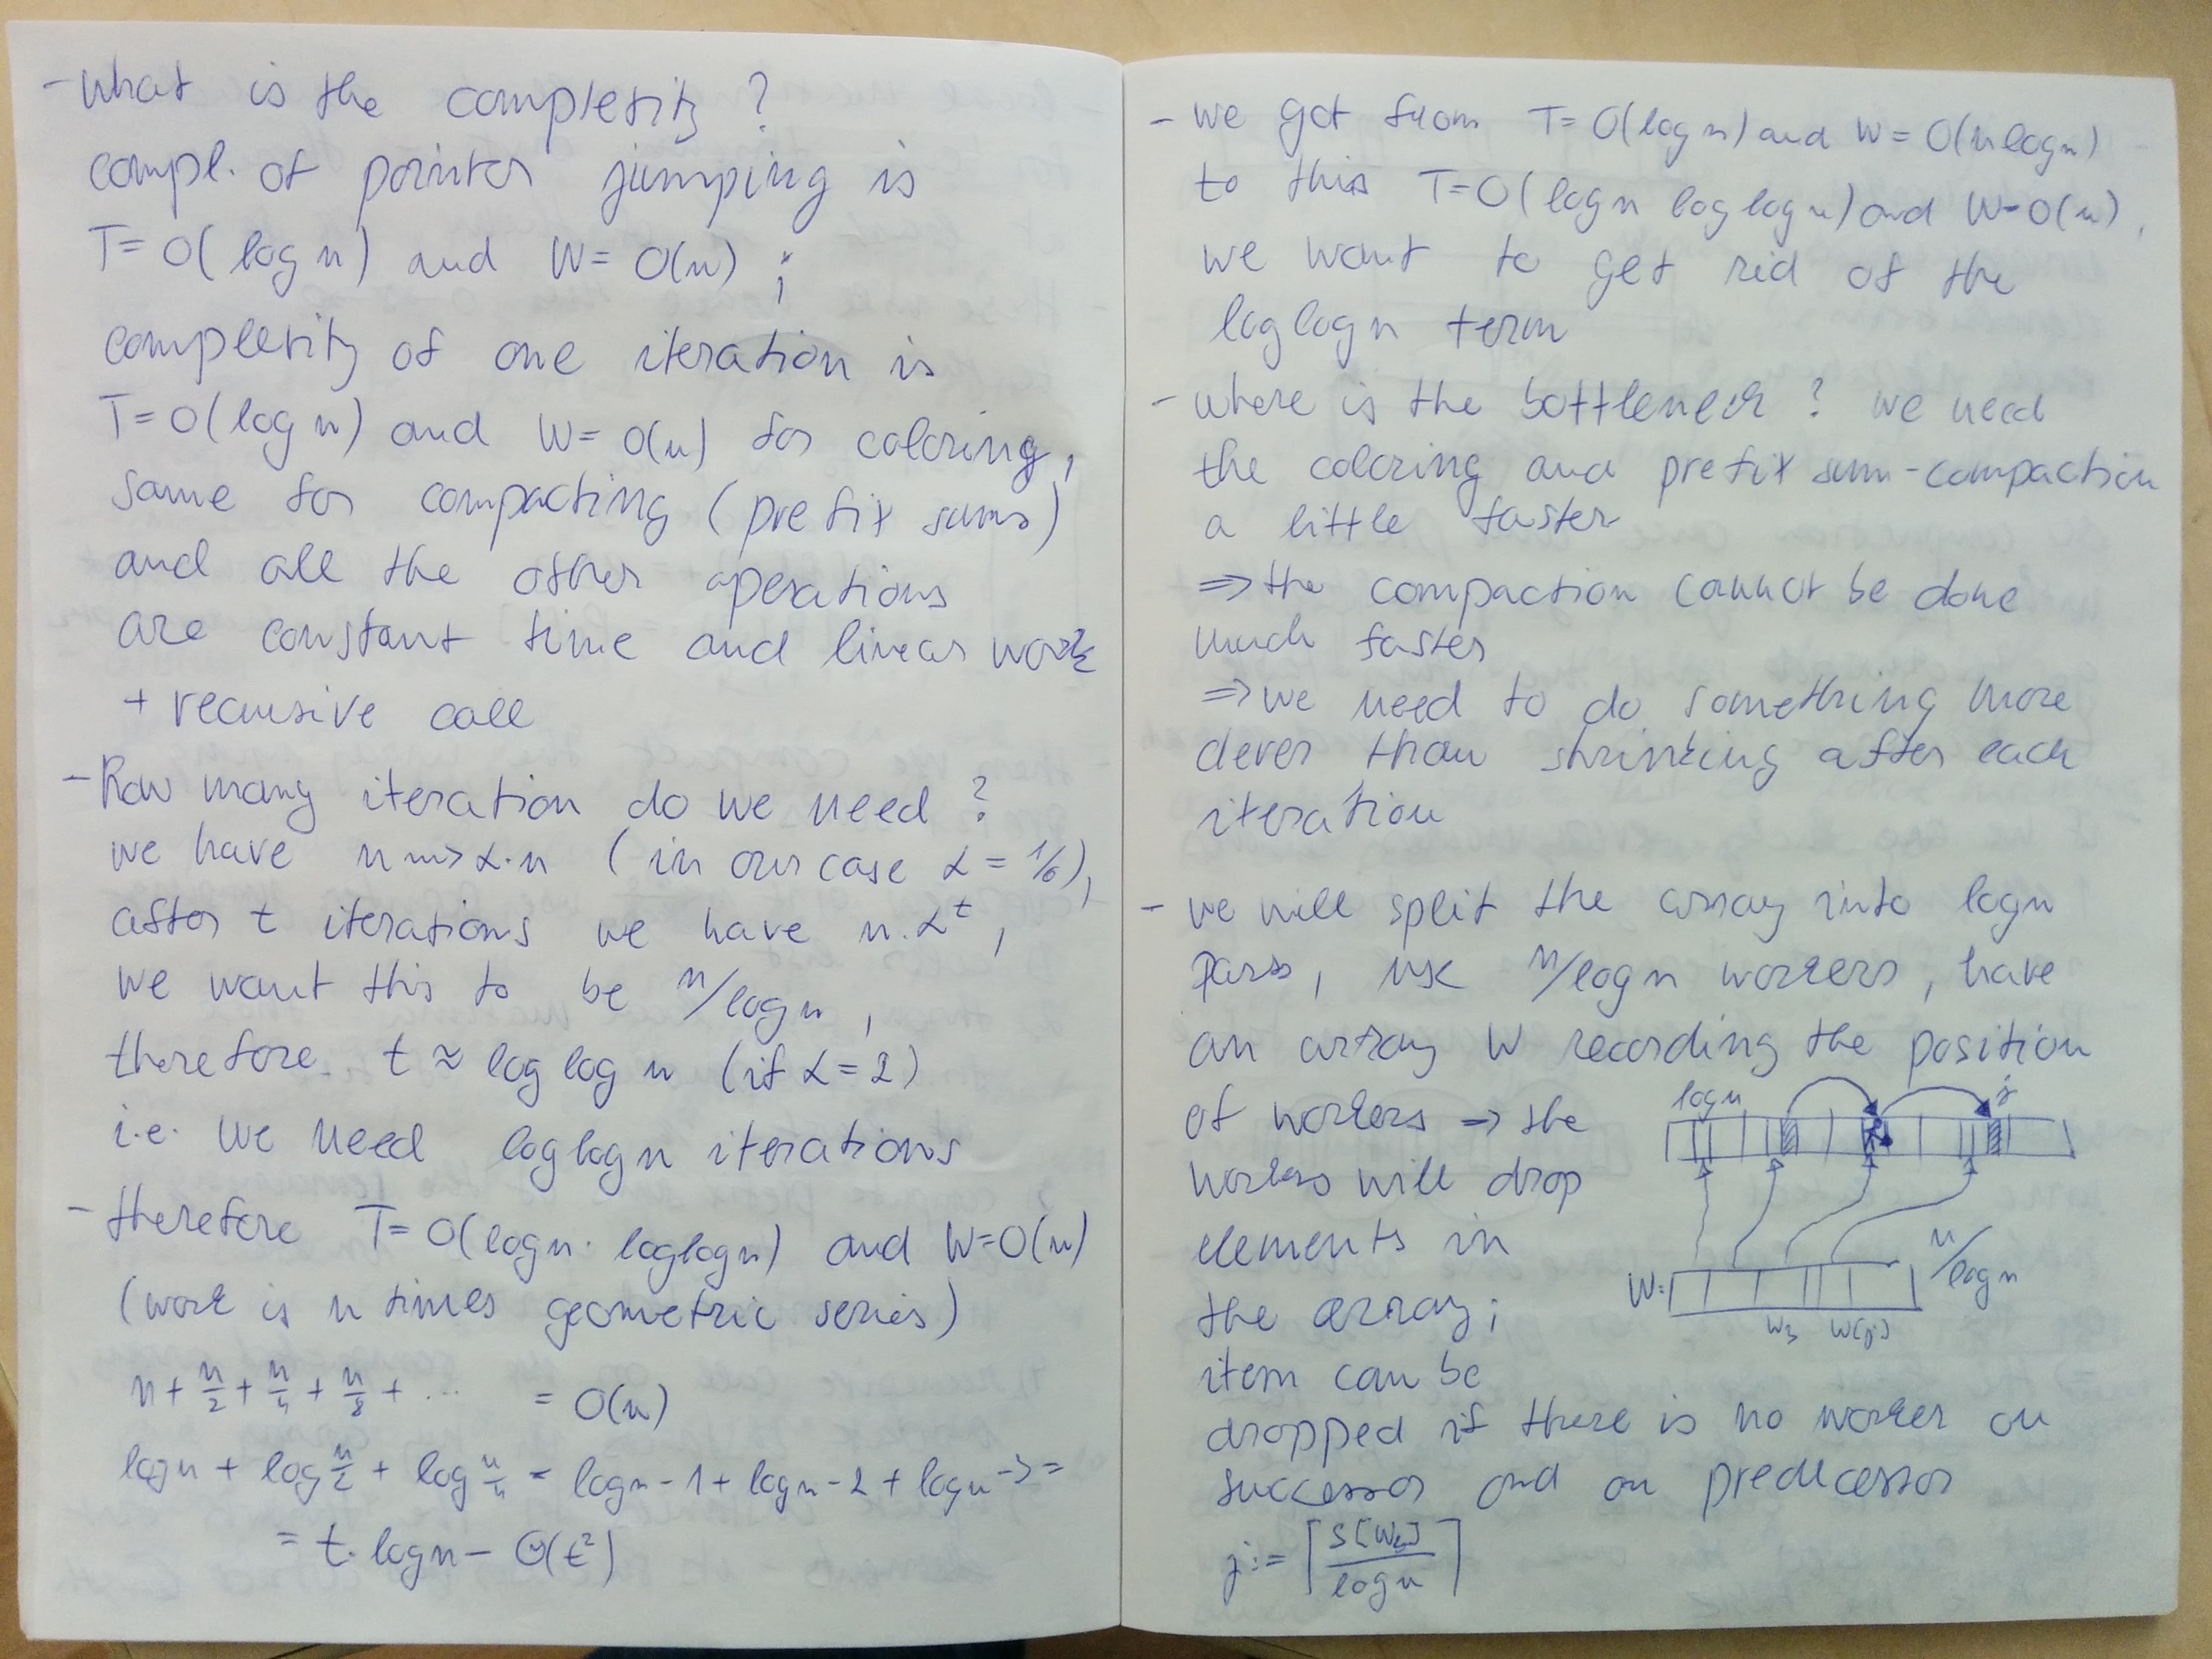 - what is the complexity?
compl. of pointer jumping is
T=O(log n) and W= O(n) ;
complexity of one iteration is
T=O(log n) and W= O(n) for coloring,
same for compacting (prefix sums)
and all the other operations
are constant time and linear work
+ recursive call
- How many iteration do we need?
we have n ⇝ α·n (in our case α = 1/6),
after t iterations we have n·α^t,
we want this to be n/log n,
therefore t ≈ log log n (if α=2)
i.e. we need loglog n iterations
- therefore T= O(log n · loglog n) and W=O(n)
(work is n times geometric series)
n + n/2 + n/4 + n/8 + ... = O(n)
log n + log n/2 + log n/4 = log n - 1 + log n - 2 + log n - 3 =
= t·log n - Θ(t²)
- we got from T= O(log n) and W= O(n log n)
to this T=O(log n log log n) and W=O(n),
we want to get rid of the
log log n term
- where is the bottleneck? we need
the coloring and prefix sum-compaction
a little faster
⇒ the compaction cannot be done
much faster
⇒ we need to do something more
clever than shrinking after each
iteration
- we will split the array into log n
pars, use n/log n workers, have
an array W recording the position
of workers ⇒ the
log n j
workers will drop
elements in
n/log n
the array;
W:
W_3 W(j)
item can be
dropped if there is no worker on
successor and on predecessor
j := ⌈S[W_3]/log n⌉